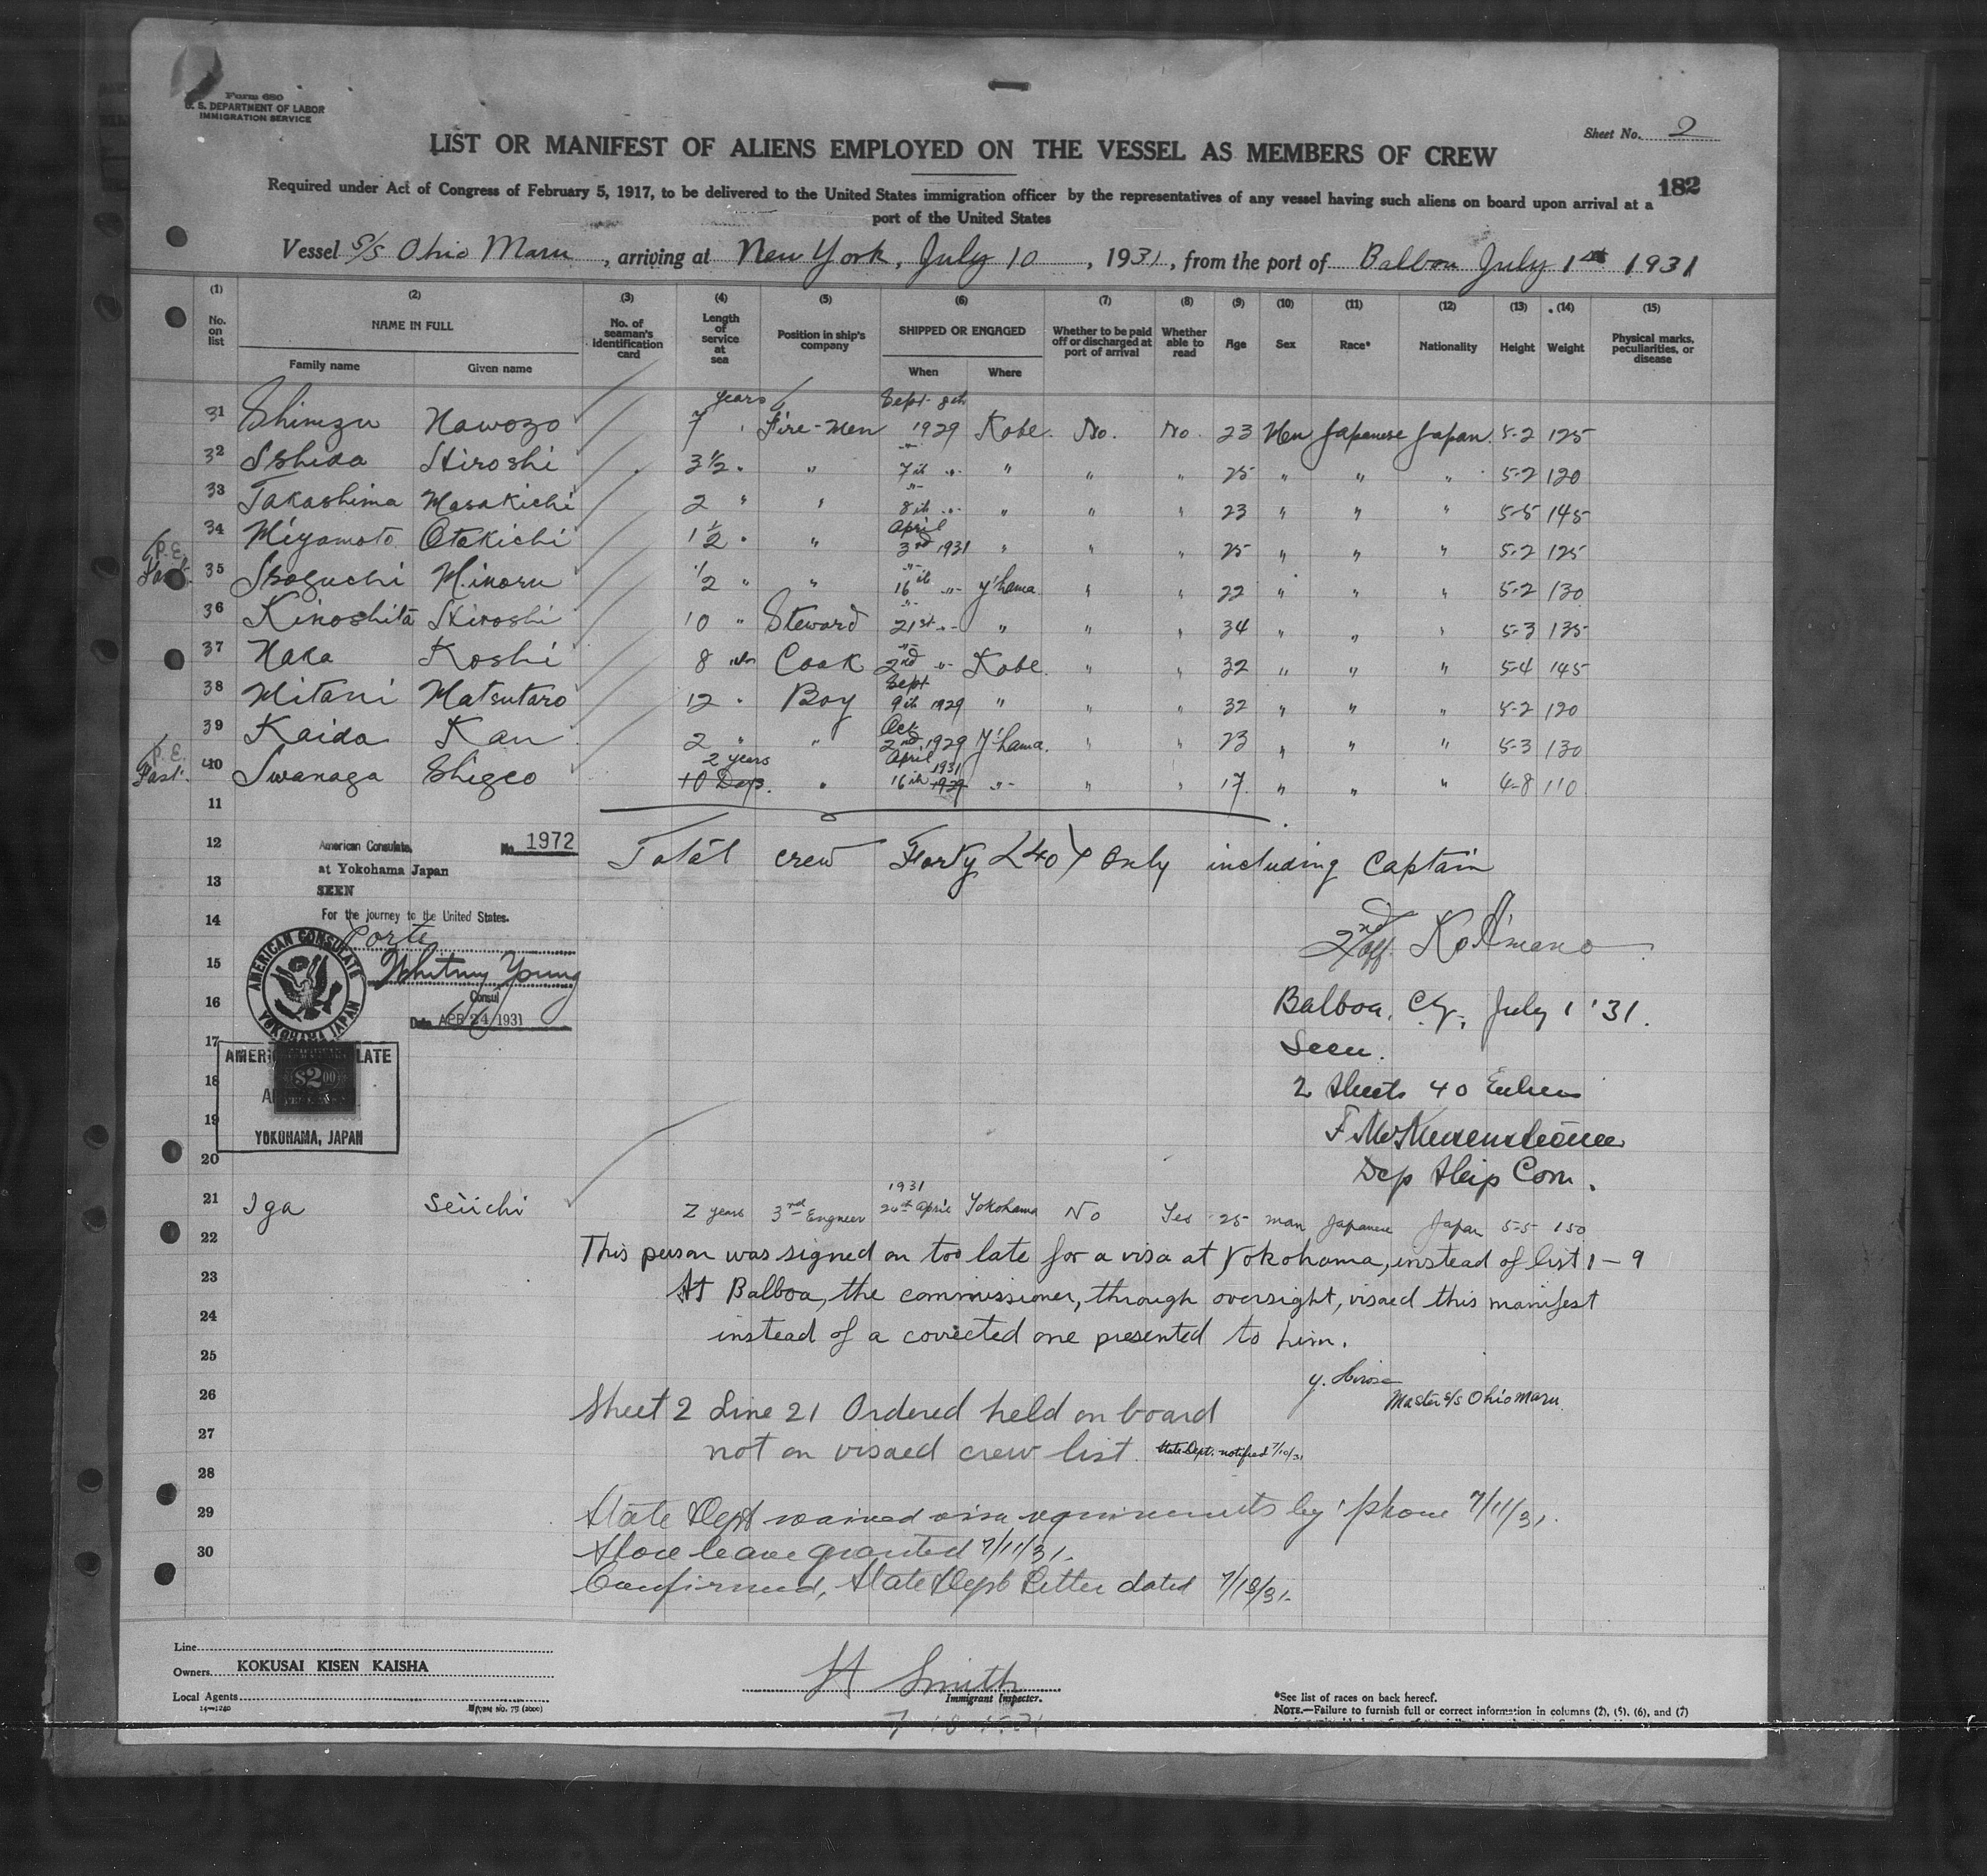 Form 680
U. S. DEPARTMENT OF LABOR
IMMIGRATION SERVICE
Sheet No. 2
LIST OR MANIFEST OF ALIENS EMPLOYED ON THE VESSEL AS MEMBERS OF CREW
182
Required under Act of Congress of February 5, 1917, to be delivered to the United States immigration officer by the representatives of any vessel having such aliens on board upon arrival at a
port of the United States
Vessel S/S Ohio Maru, arriving at New York, July 10, 1931, from the port of Balboa July 1st 1931
(1) (2) (3) (4) (5) (6) (7) (8) (9) (10) (11) (12) (13) (14) (15)
No. on list NAME IN FULL No. of seaman's identification card Length of service at sea Position in ship's company SHIPPED OR ENGAGED Whether to be paid off or discharged at port of arrival Whether able to read Age Sex Race* Nationality Height Weight Physical marks, peculiarities, or disease
Family name Given name When Where
31 Shimizu Nawozo 7 years Fire-men Sept 8th 1929 Kobe No. No. 23 Men Japanese Japan 5-2 125
32 Ishida Hiroshi 3 1/2 " " 7th " " " " 25 " " " 5-2 120
33 Takashima Masakichi 2 " " 8th " " " " 23 " " " 5-5 145
34 Miyamoto Otokichi 1 1/2 " " April 3rd 1931 " " " 25 " " " 5-2 125
P.E.
35 Isoguchi Minoru 1/2 " " 16th " Y'hama " " 22 " " " 5-2 130
36 Kinoshita Hiroshi 10 " Steward 21st " " " " 34 " " " 5-3 135
37 Naka Koshi 8 Cook 2nd " Kobe " " 32 " " " 5-4 145
38 Mitani Matsutaro 12 " Boy Sept 9th 1929 " " " 32 " " " 5-2 120
39 Kaida Kan 2 " " Oct 2nd 1929 Y'hama. " " 23 " " " 5-3 130
P.E.
40 Iwanaga Shigeo 2 years 10 Days. " April 16th 1931 1929 " " " 17 " " " 4-8 110
11
12 American Consulate, No. 1972
Total crew Forty (40) only including Captain
at Yokohama Japan
13 SEEN
14 For the journey to the United States.
2nd/off.
15 Whitney Young
AMERICAN CONSULATE YOKOHAMA JAPAN
16 Consul
Balboa, C.Z., July 1 '31.
Date APR 24 1931
17 Seen.
AMERI LATE
18 $2.00
2 sheets 40
19
YOKOHAMA, JAPAN
20 Dep Ship Com.
21 Iga Seiichi 2 years 3rd Engneer 1931 24th April Yokohama No Yes 25 man Japanese Japan 5-5 150
22 This person was signed on too late for a visa at Yokohama, instead of list 1-9
23 At Balboa, the commissioner, through oversight, visaed this manifest
24 instead of a corrected one presented to him.
25 Y. Hirose
26 Master S/S Ohio Maru.
Sheet 2 Line 21 Ordered held on board
27 not on visaed crew list. State Dept. notified 7/10/31
28
29 State Dept waived visa requirements by 'phone 7/11/31.
30 Shore leave granted 7/11/31.
Confirmed, State Dept Letter dated 7/13/31.
Line
Owners KOKUSAI KISEN KAISHA
Local Agents
14-1240
H Smith
Immigrant Inspector.
*See list of races on back hereof.
NOTE.—Failure to furnish full or correct information in columns (2), (5), (6), and (7)